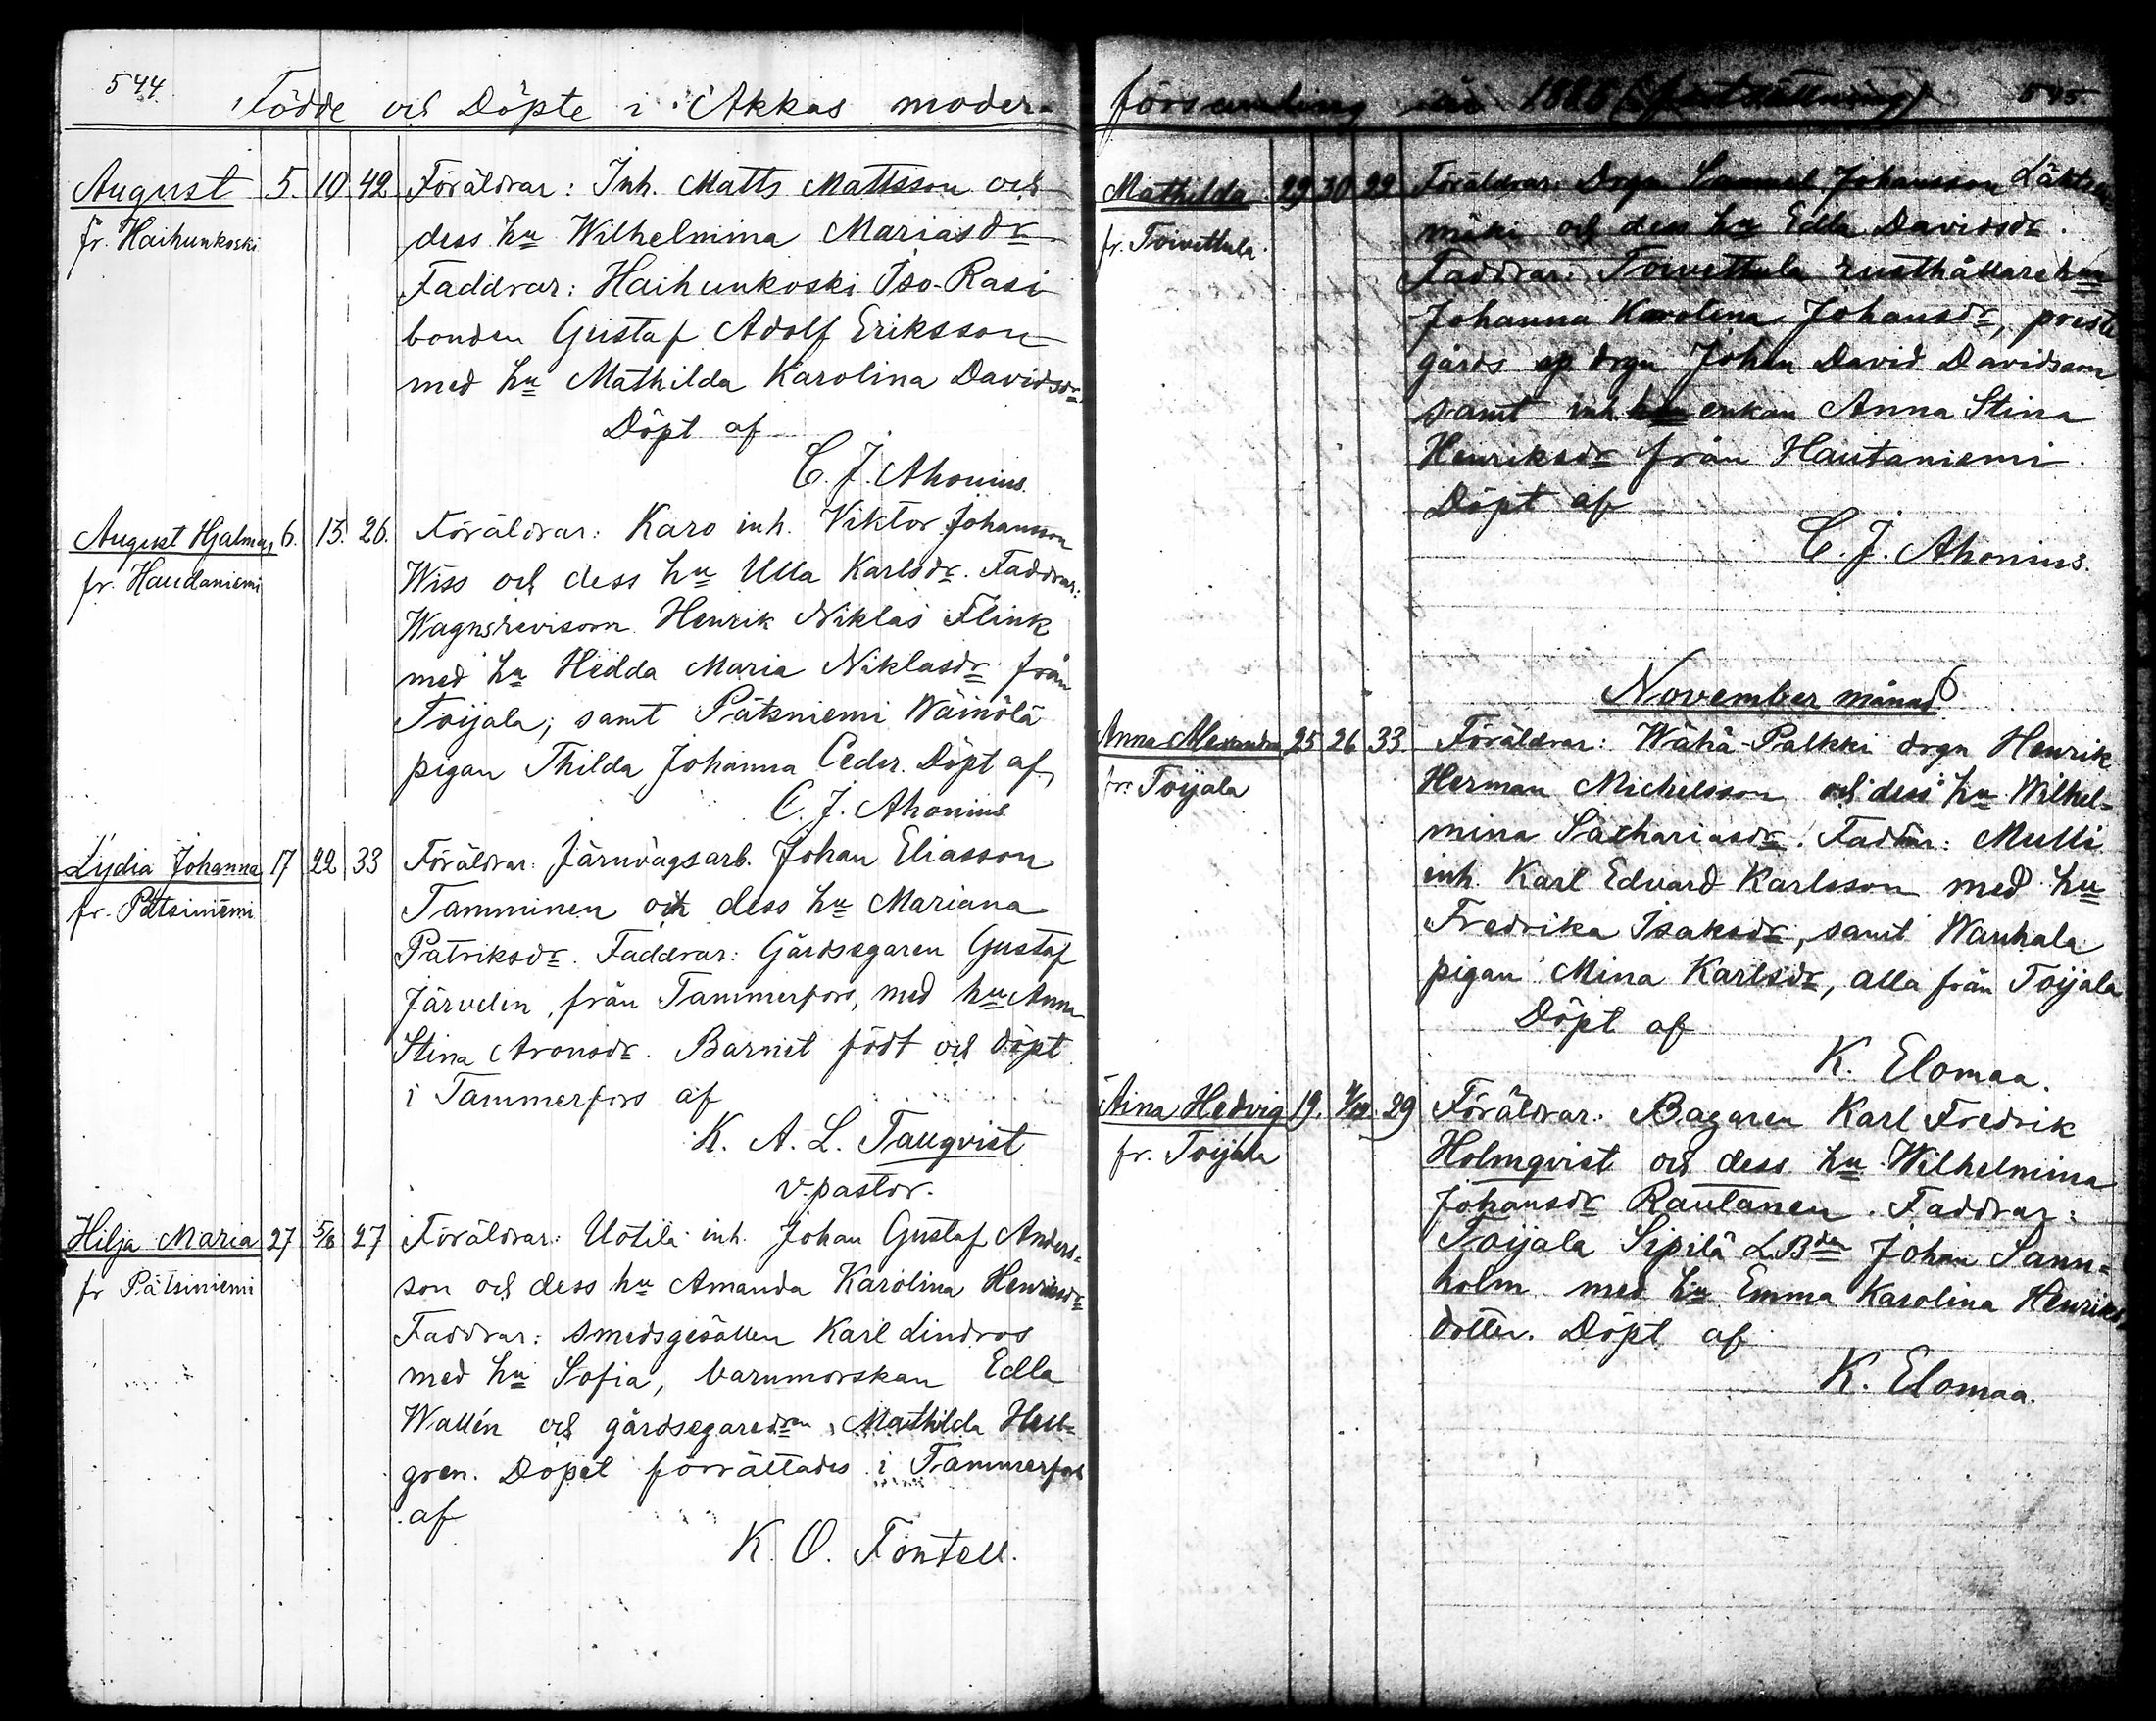 544.
Födde och Döpte i Akkas moder-
August 5. 10. 42 Föräldrar: Inh. Matts Mattsson och
fr. Haihunkoski dess hu Wilhelmina Mariasdr
Faddrar: Haihunkoski Iso-Rasi
bonden Gustaf Adolf Eriksson
med hu Mathilda Karolina Davidsdr.
Döpt af
C. J. Ahonius.
August Hjalmar 6. 13. 26. Föräldrar: Karo inh. Viktor Johansson
fr. Haudaniemi Wiss och dess hu Ulla Karlsdr. Faddrar:
Wagnsrevisorn Henrik Niklas Flink
med hu Hedda Maria Niklasdr från
Toijala, samt Pätsniemi Wäinölä
pigan Thilda Johanna Ceder. Döpt af
C. J. Ahonius.
Lydia Johanna 17 22 33 Föräldrar: Järnvägsarb. Johan Eliasson
fr. Pätsiniemi Tamminen och dess hu Mariana
Patriksdr. Faddrar: Gårdsegaren Gustaf
Järvelin, från Tammerfors, med hu Anna
Stina Aronsdr. Barnet födt och döpt
i Tammerfors af
K. A. L. Tauqvist
v. pastor.
Hilja Maria 27 5/8 27 Föräldrar: Uotila inh. Johan Gustaf Anders-
fr Pätsiniemi son och dess hu Amanda Karolina Henriksdr
Faddrar: smedsgesällen Karl Lindros
med hu Sofia, barnmorskan Edla
Wallén och gårdsegaredrn Mathilda Hell-
gren. Döpet förrättades i Tammerfors
af
K. O. Fontell.
församling år 1886 (fortsättning) 545.
Mathilda 29 30 22 Föräldrar: Drgn Samuel Johansson
fr. Toivettula. mäki och dess hu Edla Davidsdr.
Faddrar: Toivettula rusthållarehun
Johanna Karolina Johansdr, prest
gårds drgn Johan David Davidsson
samt inh enkan Anna Stina
Henriksdr från Hautaniemi.
Döpt af
C. J. Ahonius.
November månad
Anna Alexandra 25 26 33. Föräldrar: Wähä-Palkki drgn Henrik
fr. Toijala Herman Michelsson och dess hu Wilhel-
mina Sachariasdr. Faddrar: Mulli
inh. Karl Edvard Karlsson med hu
Fredrika Isaksdr, samt Wanhala
pigan Mina Karlsdr, alla från Toijala
Döpt af
K. Elomaa.
Aina Hedvig 19. 29 Föräldrar: Bagaren Karl Fredrik
fr. Toijala Holmqvist och dess hu Wilhelmina
Johansdr Rautanen. Faddrar:
Toijala Sipilä LBden Johan Sann-
holm med hu Emma Karolina Henriks
dotter. Döpt af
K. Elomaa.